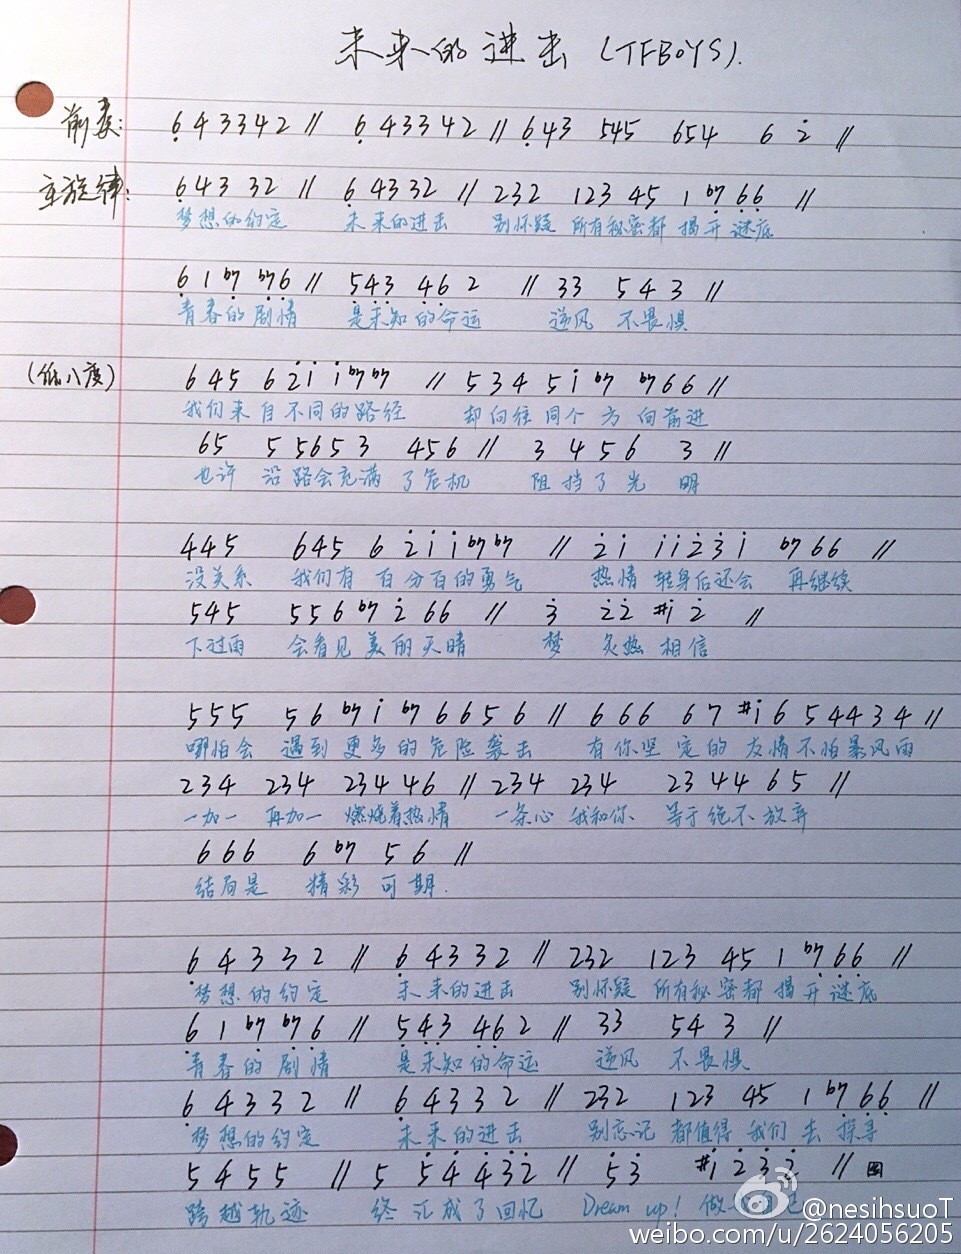 未来的进击 (TFBOYS).
前奏: 6̣ 4 3 3 4 2 // 6̣ 4 3 3 4 2 // 6 4 3 5 4 5 6 5 4 6 2̇ //
主旋律: 6̣ 4 3 3 2 // 6̣ 4 3 3 2 // 2 3 2 1 2 3 4 5 1 b7̣ 6̣ 6̣ //
梦想的约定 未来的进击 别怀疑 所有秘密都 揭开 谜底
6̣ 1 b7̣ b7̣ 6̣ // 5̣ 4̣ 3̣ 4̣ 6̣ 2 // 3 3 5 4 3 //
青春的剧情 是未知的命运 逆风 不畏惧
(低八度) 6 4 5 6 2̇ 1̇ 1̇ b7 b7 // 5 3 4 5 1̇ b7 b7 6 6 //
我们来自不同的路径 却向往同个 方向前进
6 5 5 5 6 5 3 4 5 6 // 3 4 5 6 3 //
也许 沿路会充满 了危机 阻挡了光 明
4 4 5 6 4 5 6 2̇ 1̇ 1̇ b7 b7 // 2̇ 1̇ 1̇ 1̇ 2̇ 3̇ 1̇ b7 6 6 //
没关系 我们有 百分百的勇气 热情 转身后还会 再继续
5 4 5 5 5 6 b7 2̇ 6 6 // 3̇ 2̇ 2̇ #1̇ 2̇ //
下过雨 会看见 美丽天晴 梦 炙热 相信
5 5 5 5 6 b7 1̇ b7 6 6 5 6 // 6 6 6 6 7 #1̇ 6 5 4 4 3 4 //
哪怕会 遇到 更多的危险袭击 有你坚 定的 友情不怕暴风雨
2 3 4 2 3 4 2 3 4 4 6 // 2 3 4 2 3 4 2 3 4 4 6 5 //
一加一 再加一 燃烧着热情 一条心 我和你 等于绝不放弃
6 6 6 6 b7 5 6 //
结局是 精彩 可期.
6̣ 4 3 3 2 // 6̣ 4 3 3 2 // 2 3 2 1 2 3 4 5 1 b7̣ 6̣ 6̣ //
梦想的约定 未来的进击 别怀疑 所有秘密都 揭开谜底
6̣ 1 b7̣ b7̣ 6̣ // 5̣ 4̣ 3̣ 4̣ 6̣ 2 // 3 3 5 4 3 //
青春的剧情 是未知的命运 逆风 不畏惧
6̣ 4 3 3 2 // 6̣ 4 3 3 2 // 2 3 2 1 2 3 4 5 1 b7̣ 6̣ 6̣ //
梦想的约定 未来的进击 别忘记 都值得 我们 去 探寻
5 4 5 5 // 5 5̇ 4̇ 4̇ 3̇ 2̇ // 5̇ 3̇ #1̇ 2̇ 3̇ 2̇ //
跨越轨迹 终 汇成了回忆 Dream up! 做
@nesihsuoT
weibo.com/u/2624056205